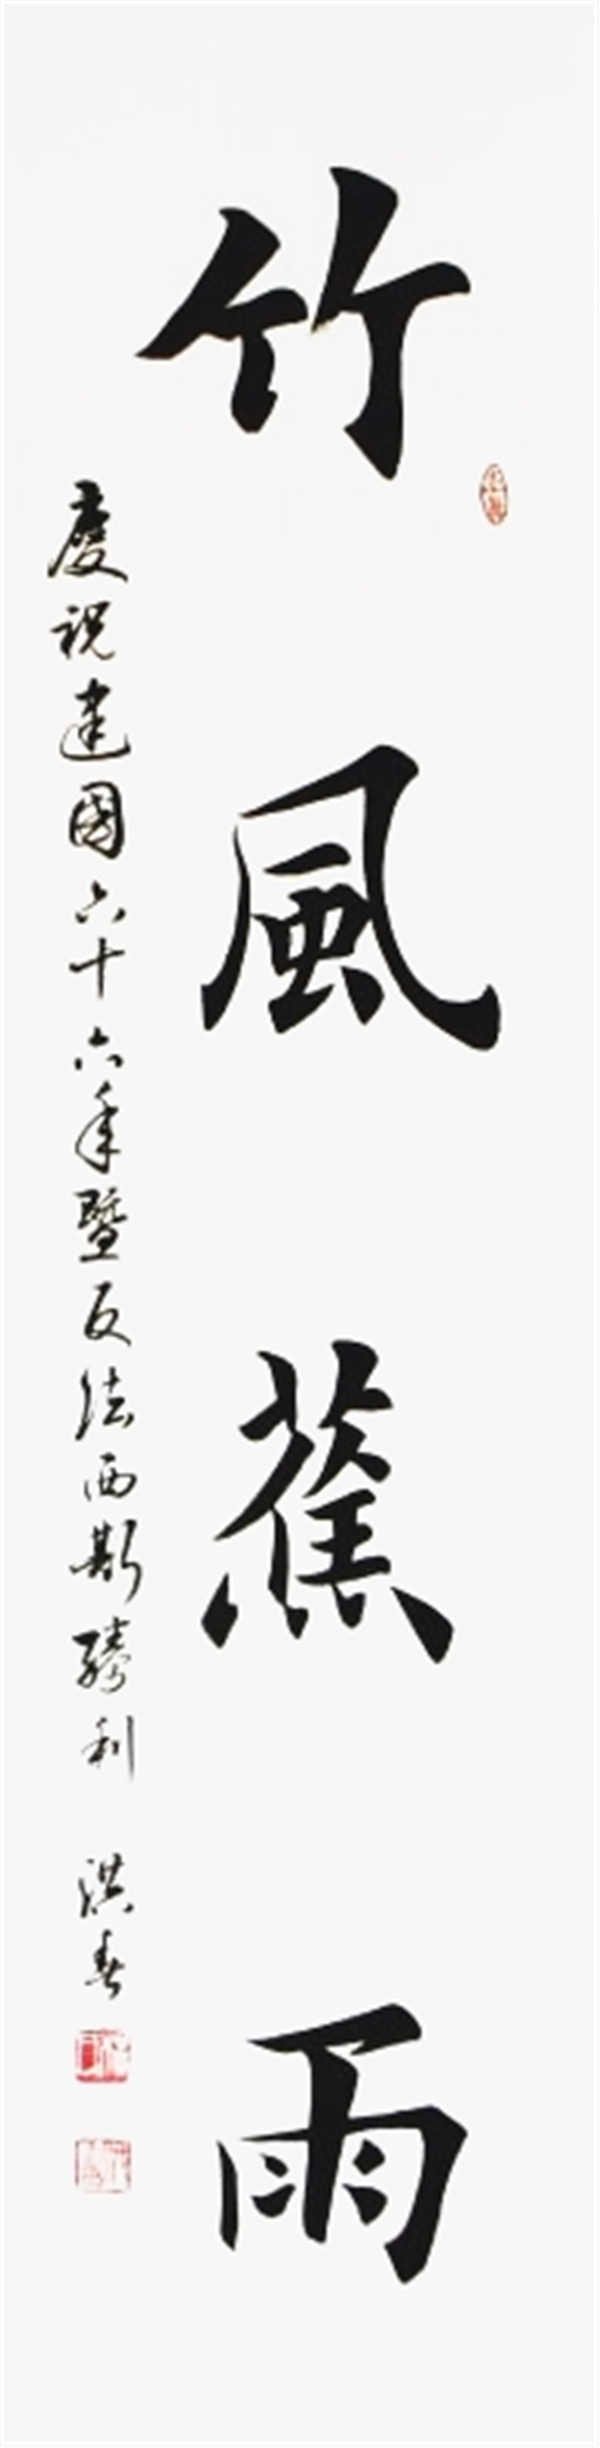 竹風蕉雨
慶祝建國六十六年暨反法西斯勝利
洪春